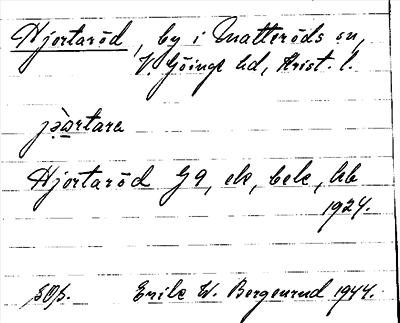 Hjortaröd, by i Matteröds sn,
V. Göinge hd, Krist. l.
jò̤artara
Hjortaröd G9, ek, bek, hb
1924.
SOp. Erik W. Bergenrud 1944.